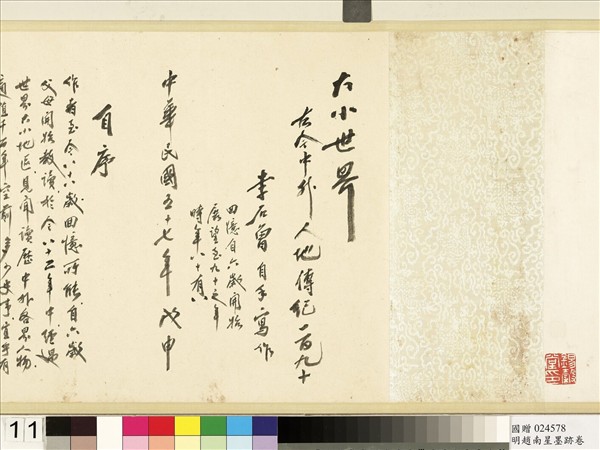 大小世界
古今中外人地傳紀一百九十
李石曾自手寫作
回憶自六歲開始
展望至九十之年
時年八十有八
中華民國五十七年戊申
自序
作者至今八十八歲回憶所能自六歲
父母開始教讀於今八十二年中經過
世界大小地區見聞讀歷中外各界人物
11
國贈 024578
明趙南星墨跡卷